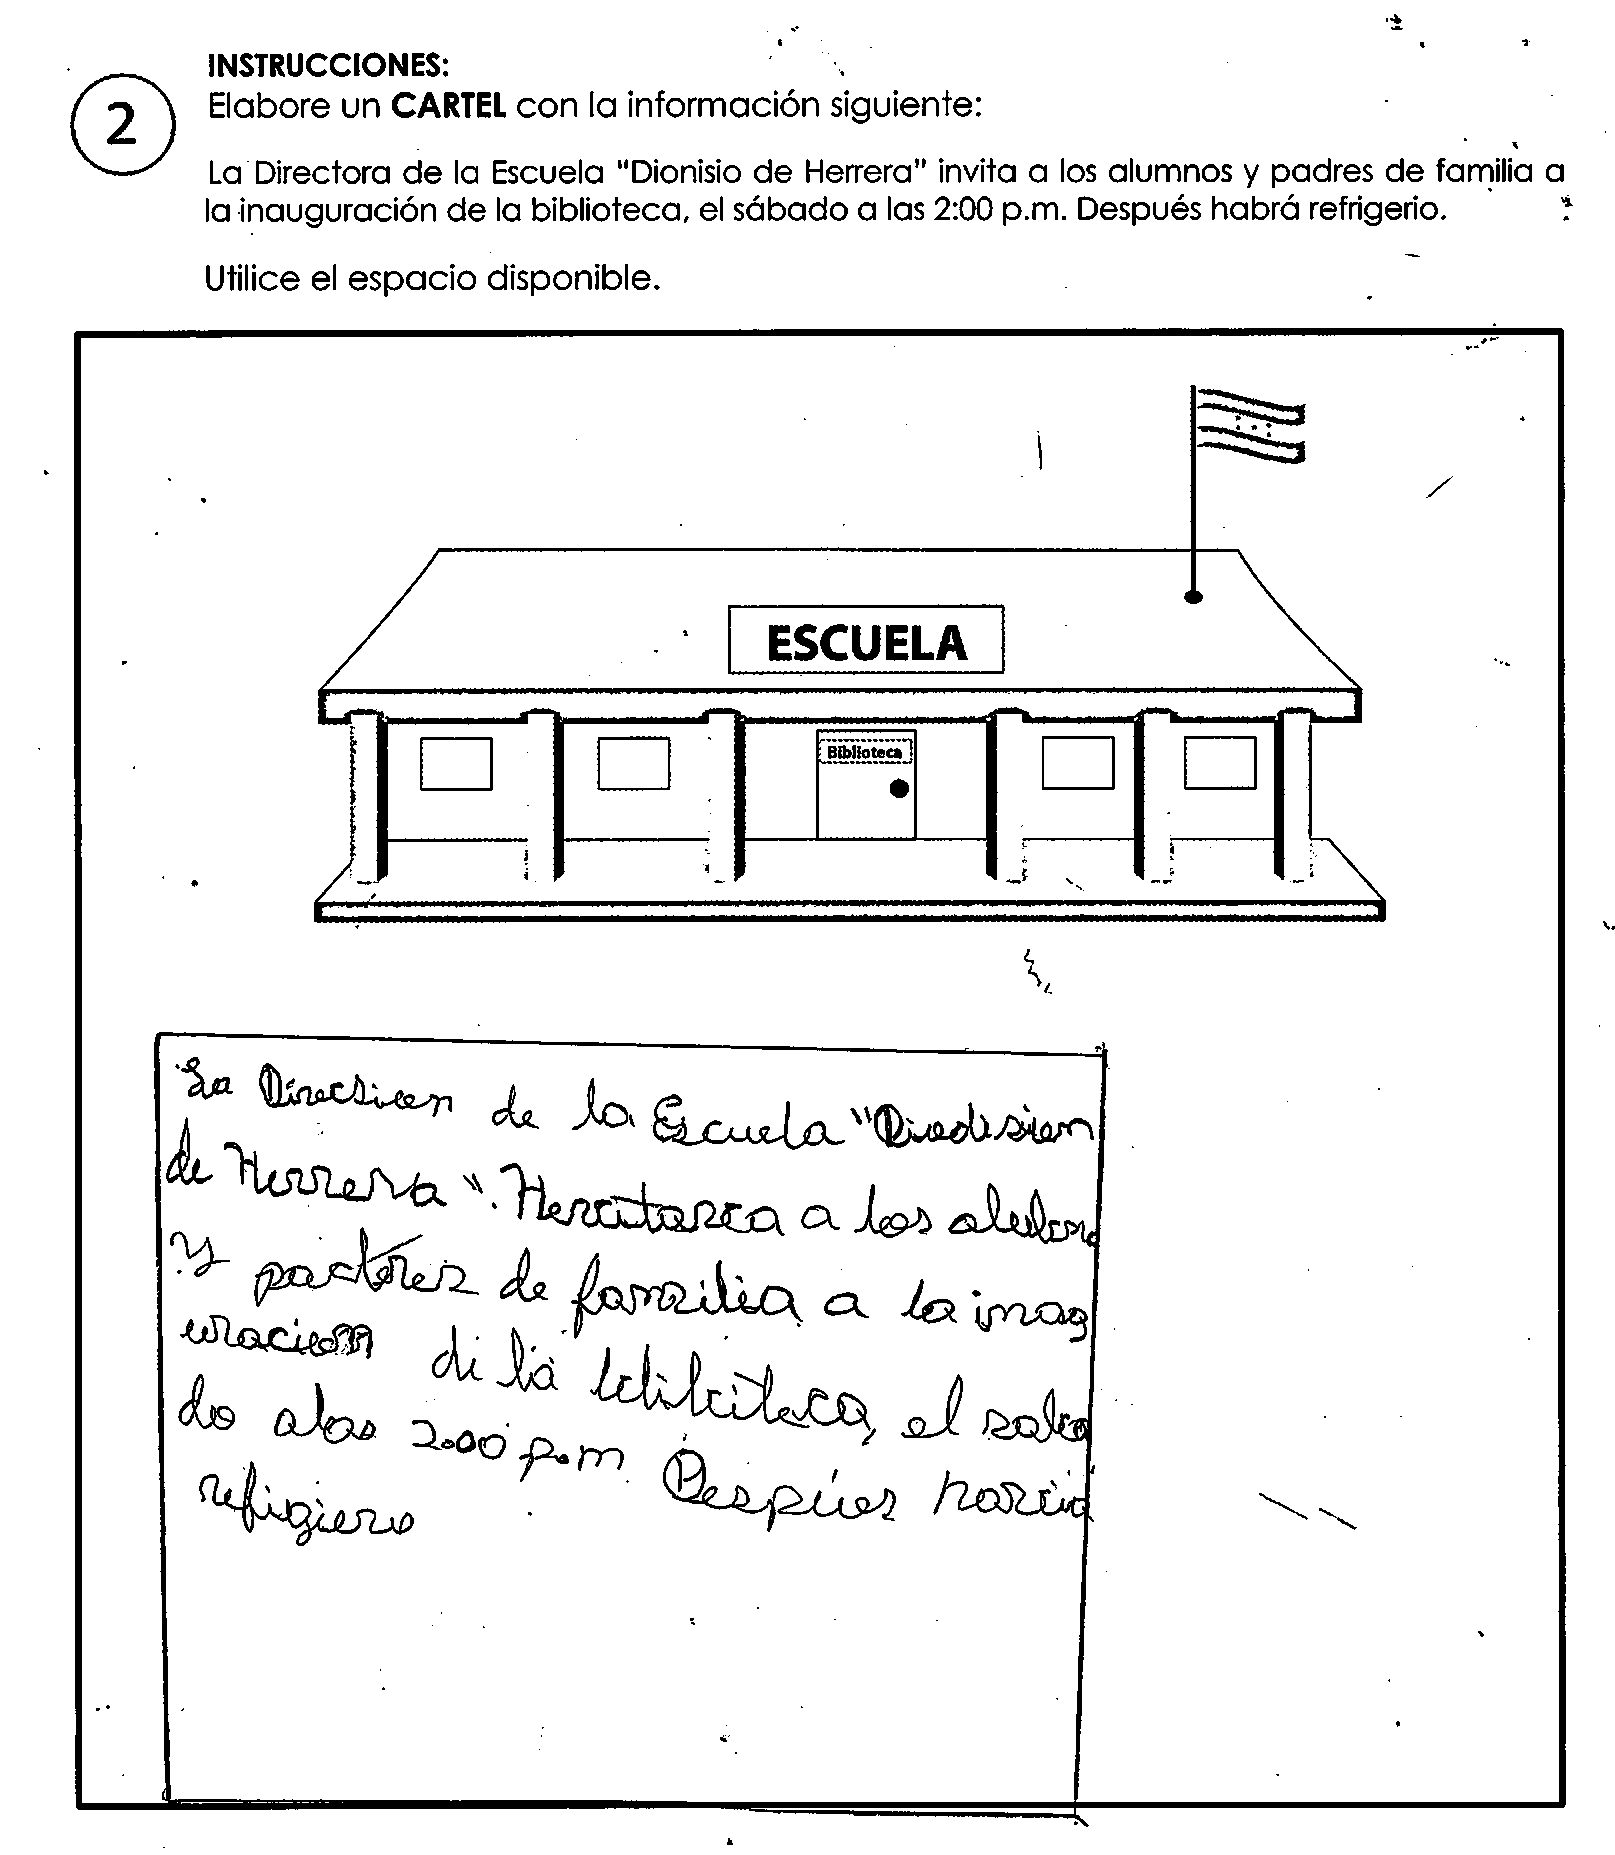 INSTRUCCIONES:
2
Elabore un CARTEL con la información siguiente:
La Directora de la Escuela "Dionisio de Herrera" invita a los alumnos y padres de familia a
la inauguración de la biblioteca, el sábado a las 2:00 p.m. Después habrá refrigerio.
Utilice el espacio disponible.
ESCUELA
Biblioteca
La de la Escuela
de Herrera". a los
y de familia a la inag
uracion di la el saba
do alas 2.00 p.m Despúes
refigiero